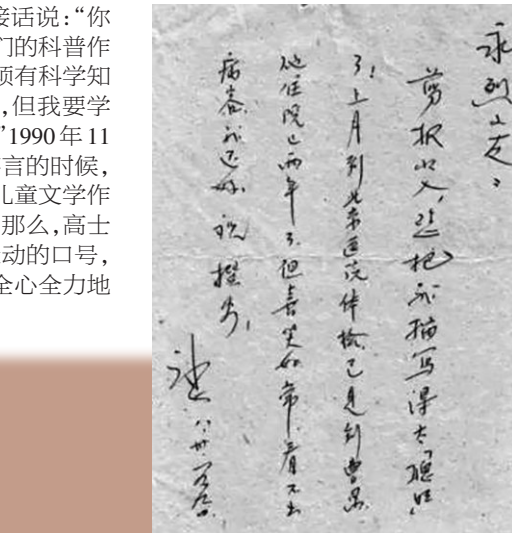 接话说:“你
们的科普作
须有科学知
,但我要学
”1990年11
言的时候,
儿童文学作
那么,高士
动的口号,
全心全力地
永烈小友:
剪报收入,您把我描写得太“聪明”
了!上月到北京医院体检已见到曹禺
他住院已两年了但喜笑如常看不出
病容我还好 祝 撰安!
冰心